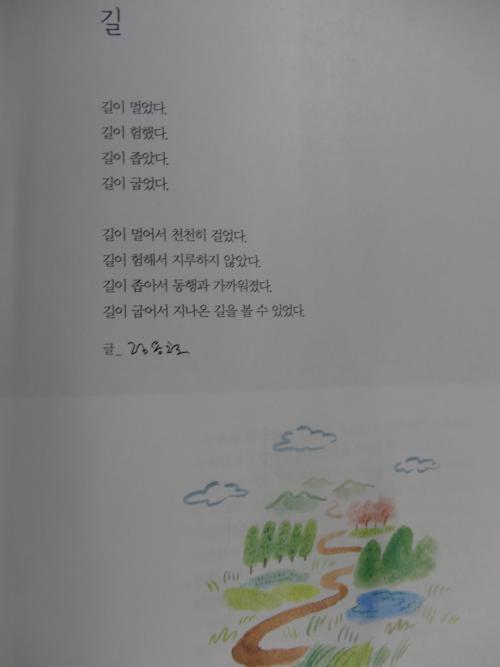 길
길이 멀었다.
길이 험했다.
길이 좁았다.
길이 굽었다.
길이 멀어서 천천히 걸었다.
길이 험해서 지루하지 않았다.
길이 좁아서 동행과 가까워졌다.
길이 굽어서 지나온 길을 볼 수 있었다.
글_